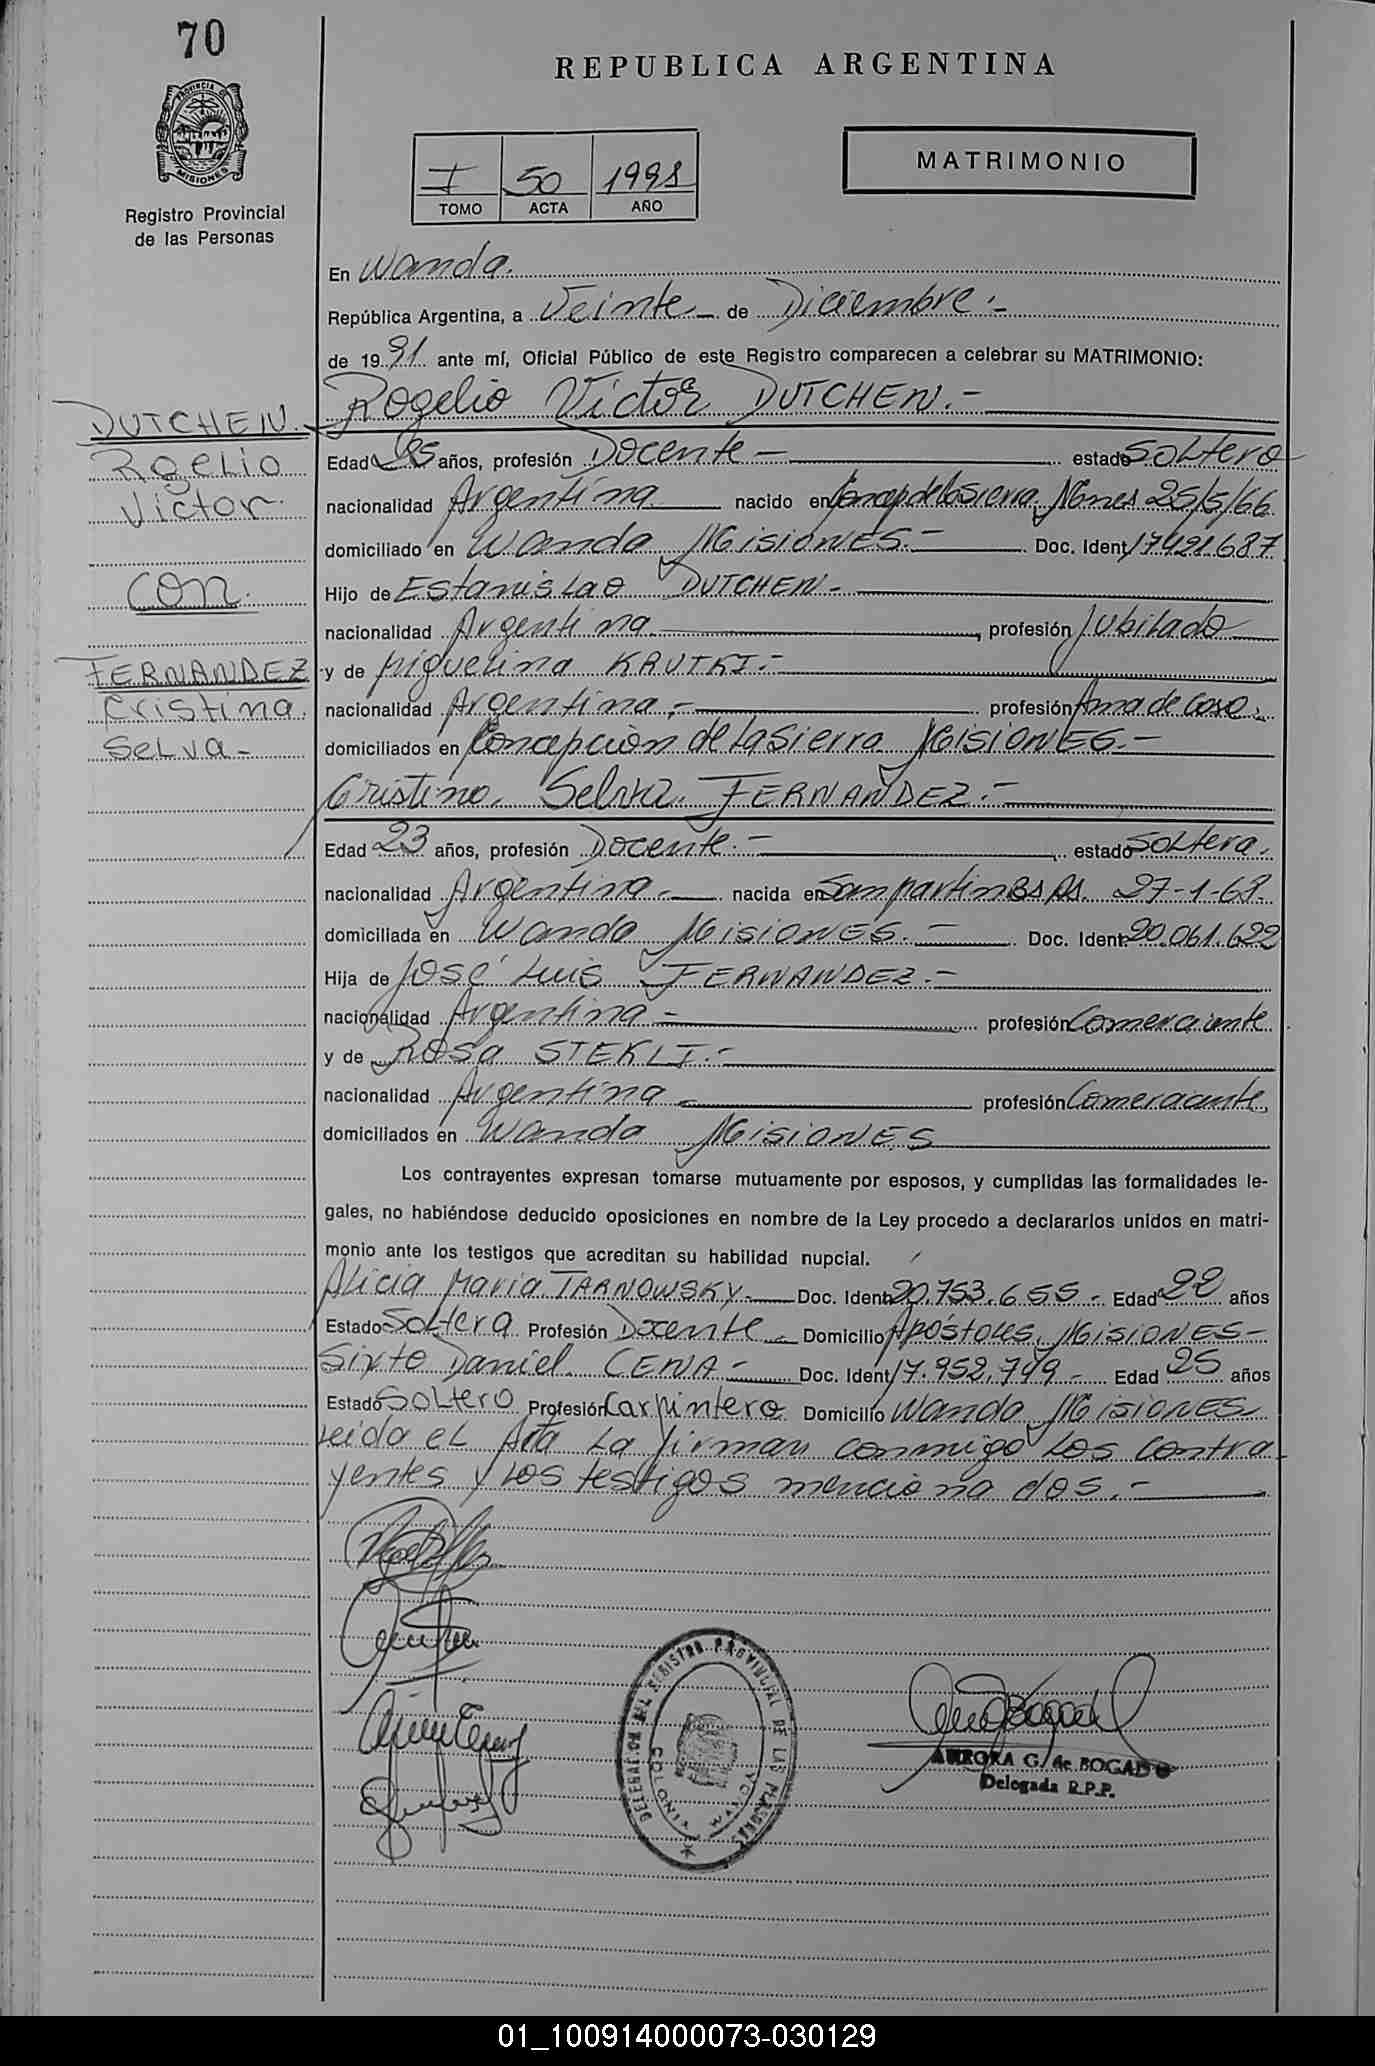 70
REPUBLICA ARGENTINA
PROVINCIA DE
MISIONES
Registro Provincial
de las Personas
I 50 1991
TOMO ACTA AÑO
MATRIMONIO
En Wanda.
República Argentina, a Veinte de Diciembre.-
de 1991 ante mí, Oficial Público de este Registro comparecen a celebrar su MATRIMONIO:
Rogelio Victor DUTCHEN.-
DUTCHEN.
Rogelio
Victor.
con.
FERNANDEZ
Cristina
Selva-
Edad 25 años, profesión Docente - estado Soltero
nacionalidad Argentina nacido en Concep de la Sierra, Mnes 25/5/66
domiciliado en Wanda Misiones.- Doc. Ident 17421687
Hijo de Estanislao DUTCHEN-
nacionalidad Argentina, profesión Jubilado
y de Miguelina KRUTKI.-
nacionalidad Argentina,- profesión Ama de Casa.
domiciliados en Concepción de la Sierra Misiones.-
Cristina Selva FERNANDEZ.-
Edad 23 años, profesión Docente.- estado Soltera.
nacionalidad Argentina.- nacida en San Martin Bs As. 27-1-68.
domiciliada en Wanda Misiones.- Doc. Ident 20.061.622
Hija de José Luis FERNANDEZ.-
nacionalidad Argentina- profesión Comerciante
y de Rosa STEKLI.-
nacionalidad Argentina- profesión Comerciante,
domiciliados en Wanda Misiones
Los contrayentes expresan tomarse mutuamente por esposos, y cumplidas las formalidades le-
gales, no habiéndose deducido oposiciones en nombre de la Ley procedo a declararlos unidos en matri-
monio ante los testigos que acreditan su habilidad nupcial.
Alicia Maria TARNOWSKY- Doc. Ident 20.753.655- Edad 22 años
Estado Soltera Profesión Docente- Domicilio Apóstoles, Misiones-
Sixto Daniel CENA- Doc. Ident 17.952.749- Edad 25 años
Estado Soltero Profesión Carpintero Domicilio Wanda Misiones
Leida el Acta La firman conmigo Los contra-
yentes y Los testigos mencionados.-
DELEGACION DEL REGISTRO PROVINCIAL DE LAS PERSONAS
AURORA G. de BOGADO
Delegada R.P.P.
01_100914000073-030129